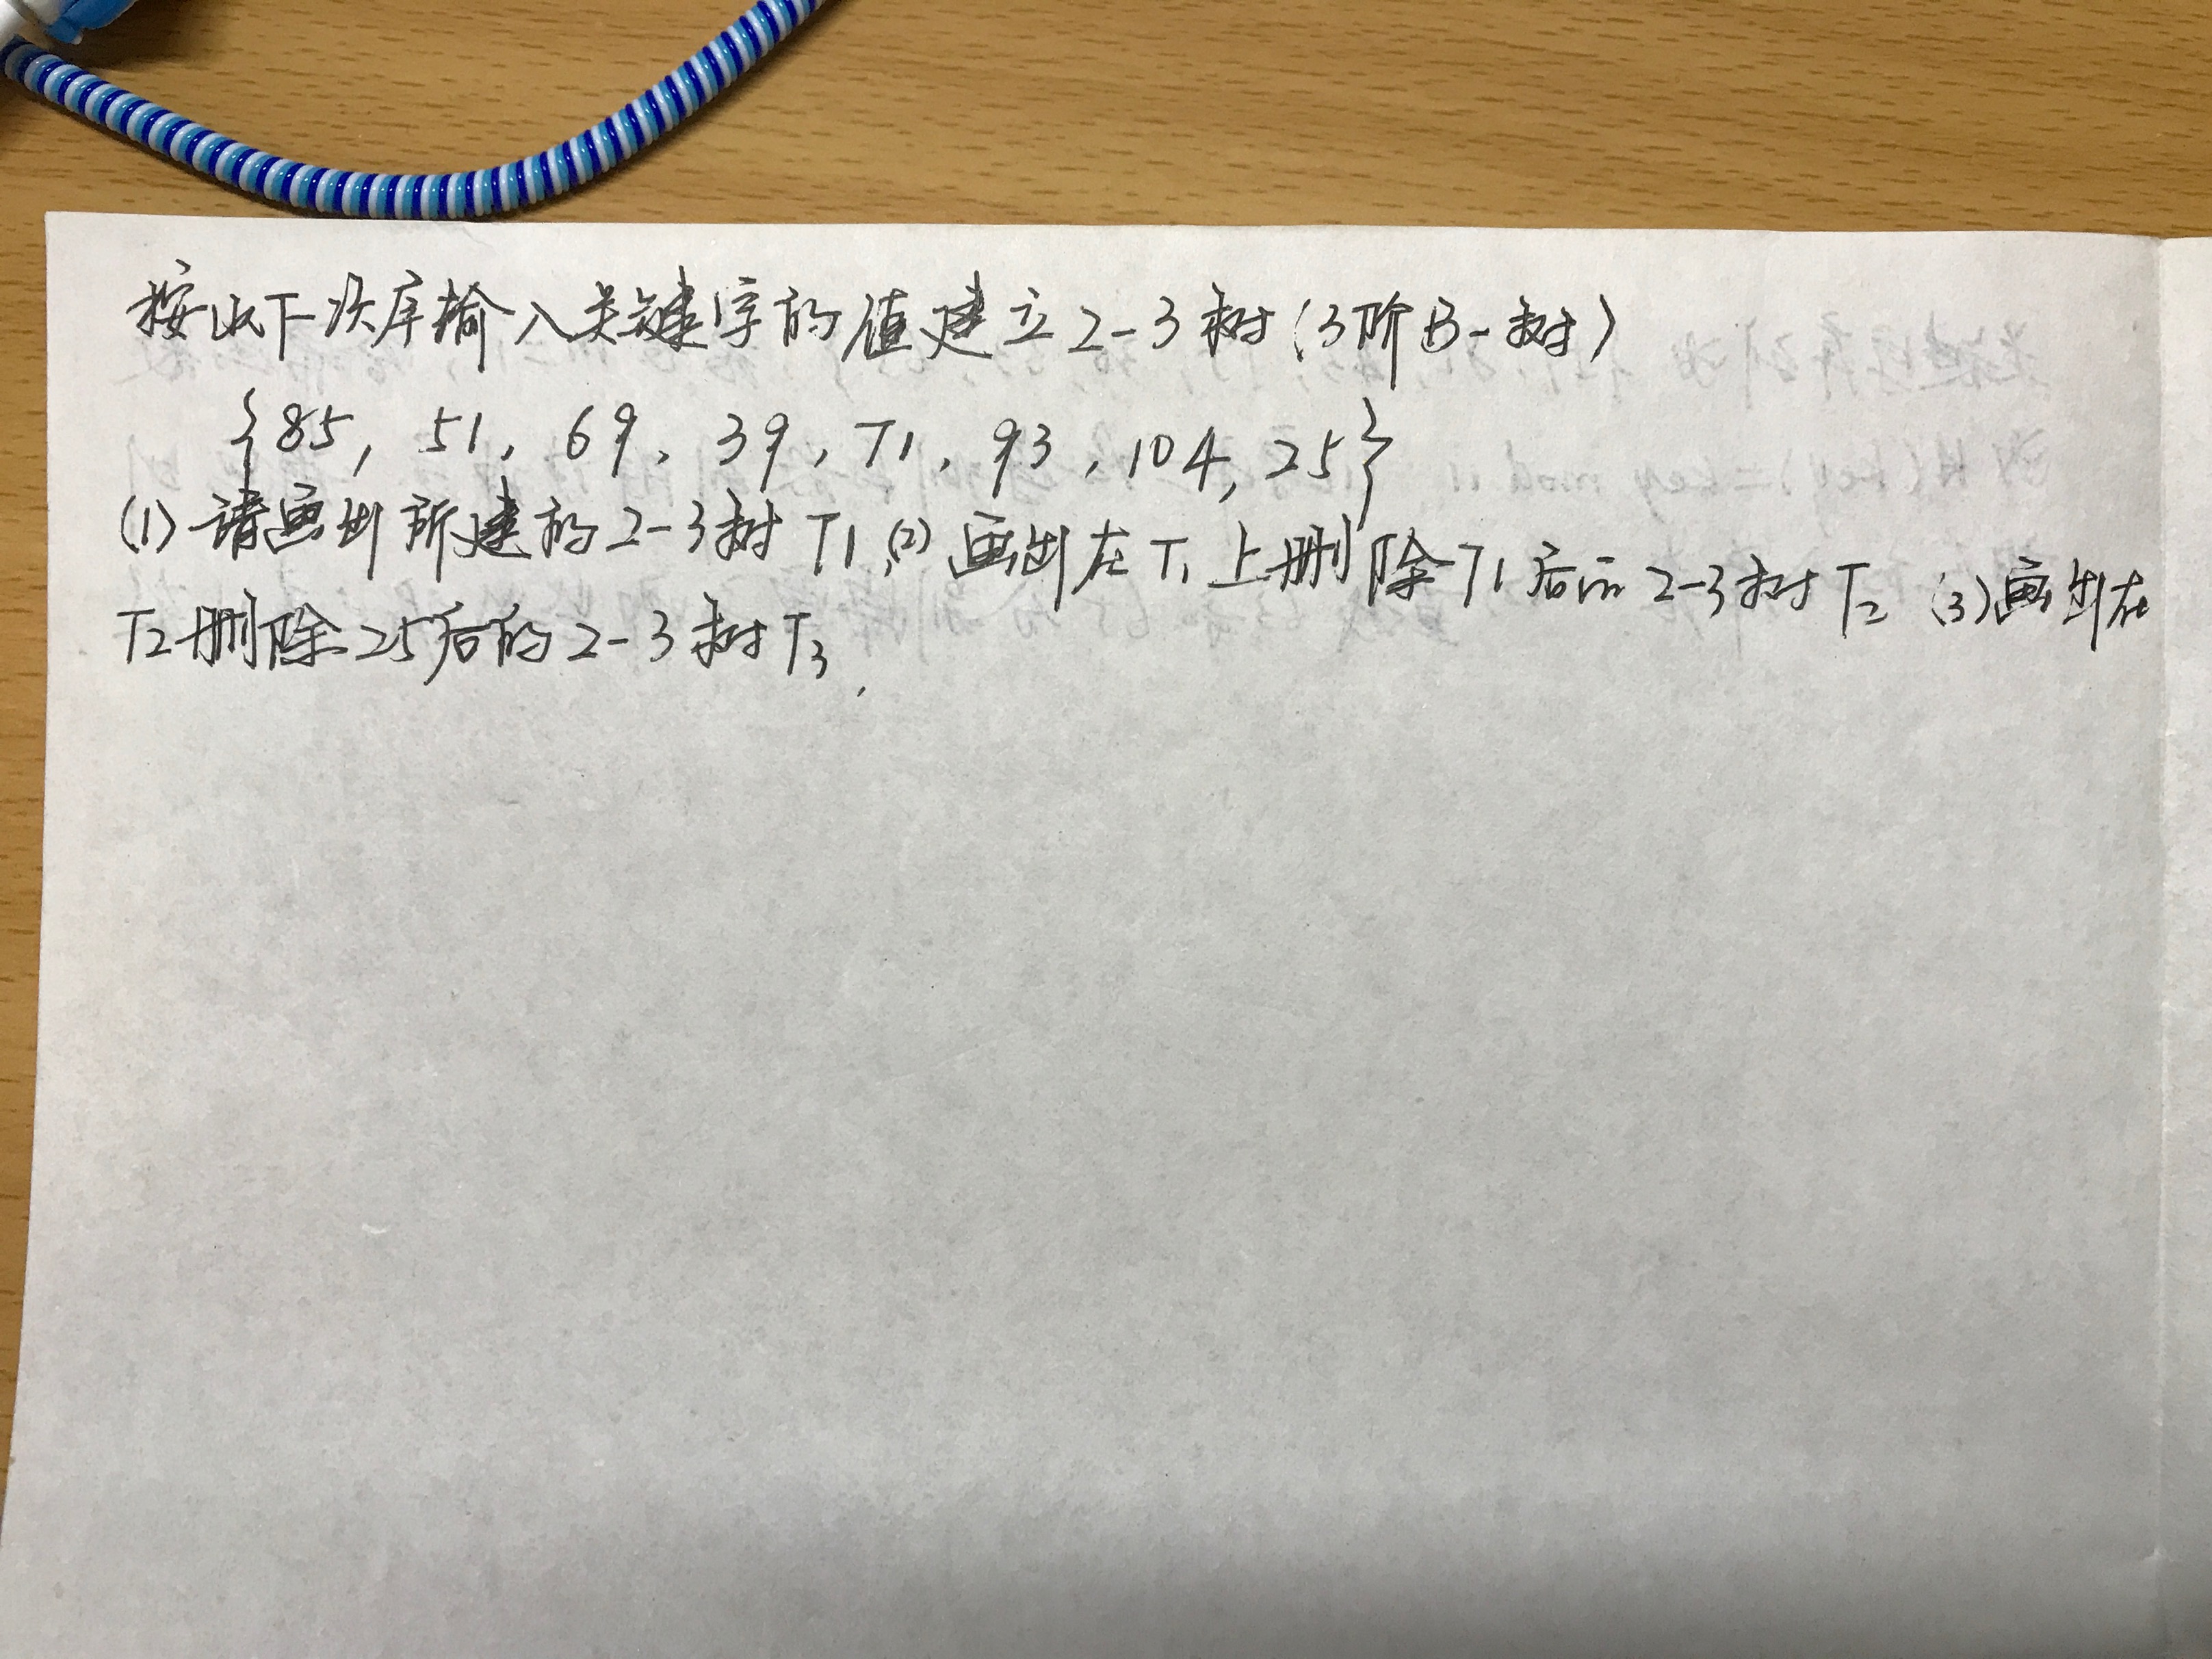 按以下次序输入关键字的值建立2-3树(3阶B-树)
{85, 51, 69, 39, 71, 93, 104, 25}
(1)请画出所建的2-3树T1,(2)画出在T1上删除71后的2-3树T2 (3)画出在
T2删除25后的2-3树T3.